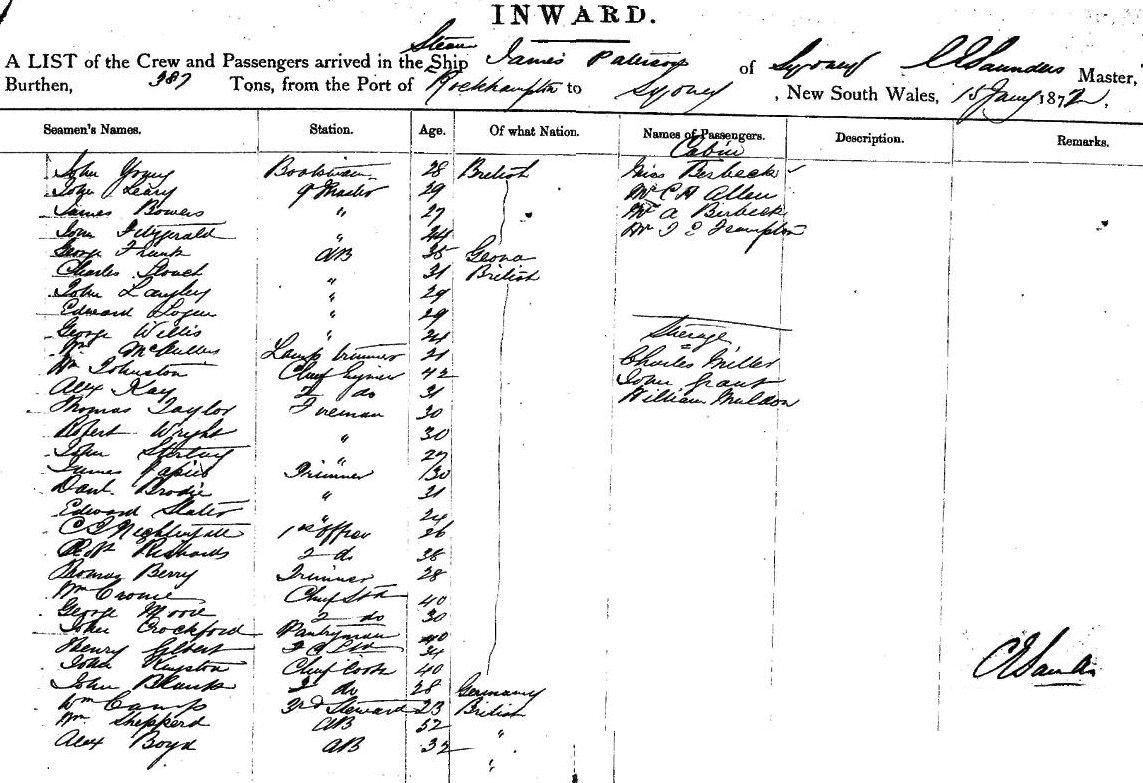 INWARD.
A LIST of the Crew and Passengers arrived in the Steam Ship James Paterson of Sydney C E Saunders Master,
Burthen, 987 Tons, from the Port of Rockhampton to Sydney, New South Wales, 15 Jany 1872.
Seamen's Names. Station. Age. Of what Nation. Names of Passengers. Description. Remarks.
Cabin
John Young 28 British Miss
John Leary 29 Mr C H Allen
James Bowers " 27 Mr A
John Fitzgerald " 44 Mr J E Frampton
George Frank AB 35
Charles " 31 British
John Langley " 29
Edward " 29
George Willis " 24 Steerage
Wm Lamp trimmer 21 Charles Miller
Wm Johnston 42 John Grant
Alex Kay 2 do 31 William Muldon
Thomas Taylor Fireman 30
Robert Wright " 30
John " 27
James Trimmer 30
Danl Brodie " 31
Edward Slater " 24
C Nightingale 1st Officer 26
Richards 2 do 38
Thomas Berry Trimmer 28
Wm Chief Std 40
George Moore 2 do 30
John Crockford Pantryman 40
Henry Gilbert 34
John Chief Cook 40
John Blank 2 do 28 Germany
Wm Camp 3rd Steward 23 British
Wm Shepperd AB 52 "
Alex Boyd AB 32 "
C E Saunders